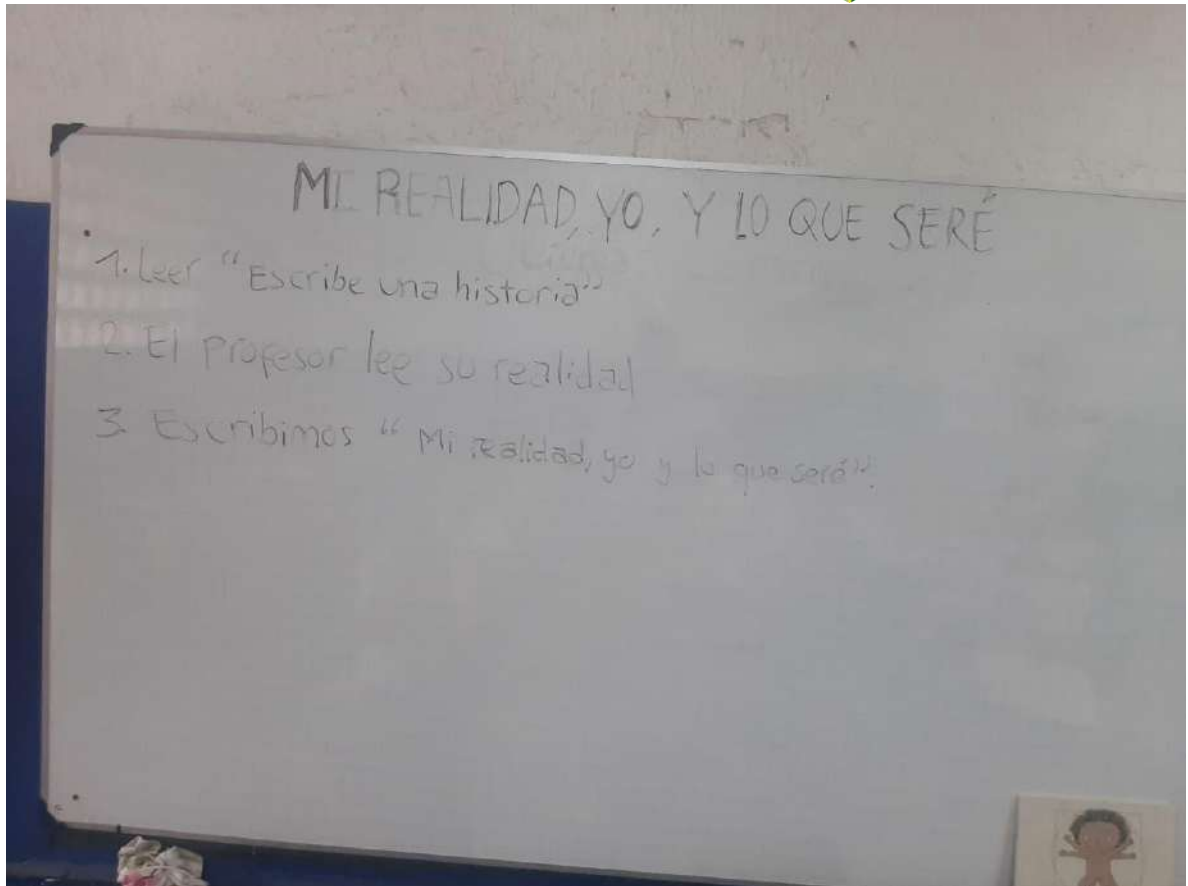 MI REALIDAD, YO, Y LO QUE SERÉ
1. Leer "Escribe una historia"
2. El profesor lee su realidad
3. Escribimos "Mi realidad, yo y lo que seré".